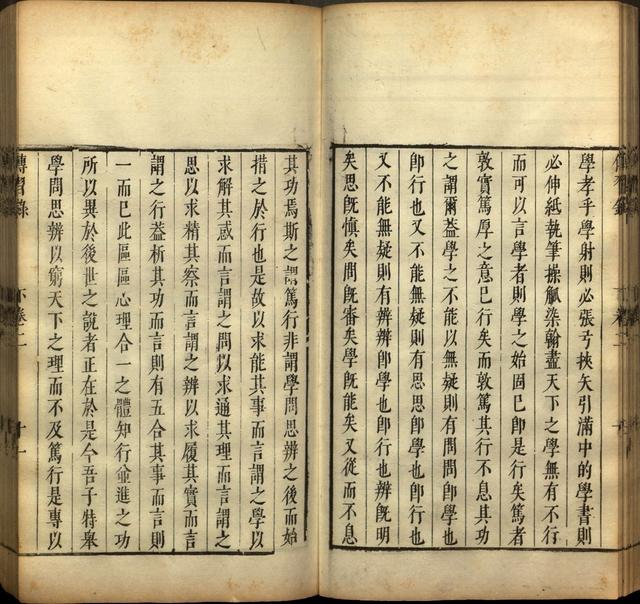 學孝乎學射則必張弓挾矢引滿中的學書則
必伸紙執筆操觚染翰盡天下之學無有不行
而可以言學者則學之始固已即是行矣篤者
敦實篤厚之意已行矣而敦篤其行不息其功
之謂爾葢學之不能以無疑則有問問即學也
即行也又不能無疑則有思思即學也即行也
又不能無疑則有辨辨即學也即行也辨旣明
矣思旣慎矣問旣審矣學旣能矣又從而不息
其功焉斯之謂篤行非謂學問思辨之後而始
措之於行也是故以求能其事而言謂之學以
求解其惑而言謂之問以求通其理而言謂之
思以求精其察而言謂之辨以求履其實而言
謂之行葢析其功而言則有五合其事而言則
一而已此區區心理合一之體知行並進之功
所以異於後世之說者正在於是今吾子特舉
學問思辨以窮天下之理而不及篤行是專以
傳習錄 下卷二 十一